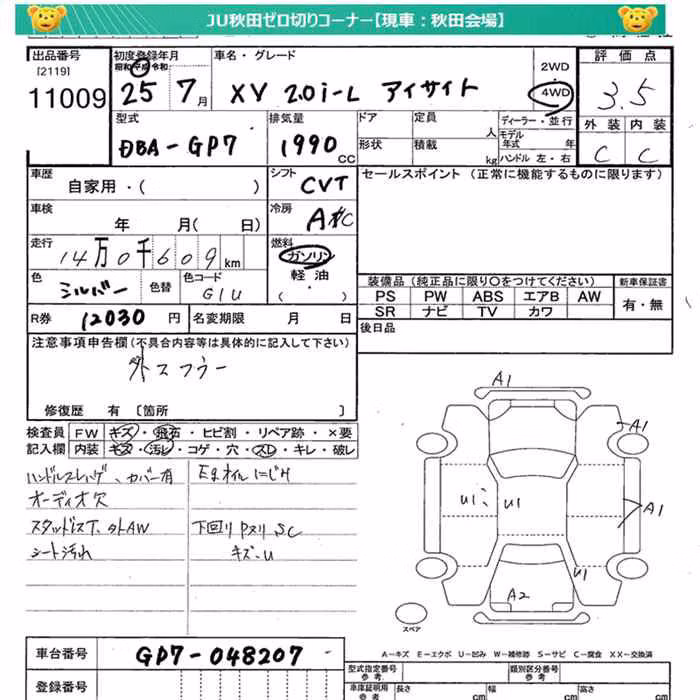 JU秋田ゼロ切りコーナー【現車：秋田会場】
出品番号
[2119]
11009
初度登録年月
昭和 平成 令和
25 7月
車名・グレード
XV 2.0i-L アイサイト
2WD
4WD
評価点
3.5
外装 内装
C C
型式
DBA-GP7
排気量
1990 CC
ドア
定員
人
形状
積載
kg
ディーラー・並行
モデル
年式 年
ハンドル 左・右
車歴
自家用・( )
シフト
CVT
セールスポイント（正常に機能するものに限ります）
車検
年 月(日)
冷房
A/C
走行
14万0千609km
燃料
ガソリン
軽油
・
( )
色
シルバー
色替
色コード
G1U
装備品（純正品に限り○をつけてください）
新車保証書
PS PW ABS エアB AW
SR ナビ TV カワ
有・無
R券
12030円
名変期限 月 日
後日品
注意事項申告欄(不具合内容等は具体的に記入して下さい)
修復歴 有 [箇所 ]
検査員
記入欄
FW キズ・飛石・ヒビ割・リペア跡・×要
内装 キズ・汚レ・コゲ・穴・スレ・キレ・破レ
ハンドルスレ カバー有
オーディオ欠
シート汚れ
Eオイルにじみ
下回りPヌリ SC
キズ・U
A1
A1
A1
U1 U1
U1
A2
スペア
A−キズ E−エクボ U−凹み W−補修跡 S−サビ C−腐食 XX−交換済
車台番号
GP7-048207
登録番号
型式指定番号
参考
類別区分番号
参考
車庫証明用
参考
長さ cm
幅 cm
高さ cm